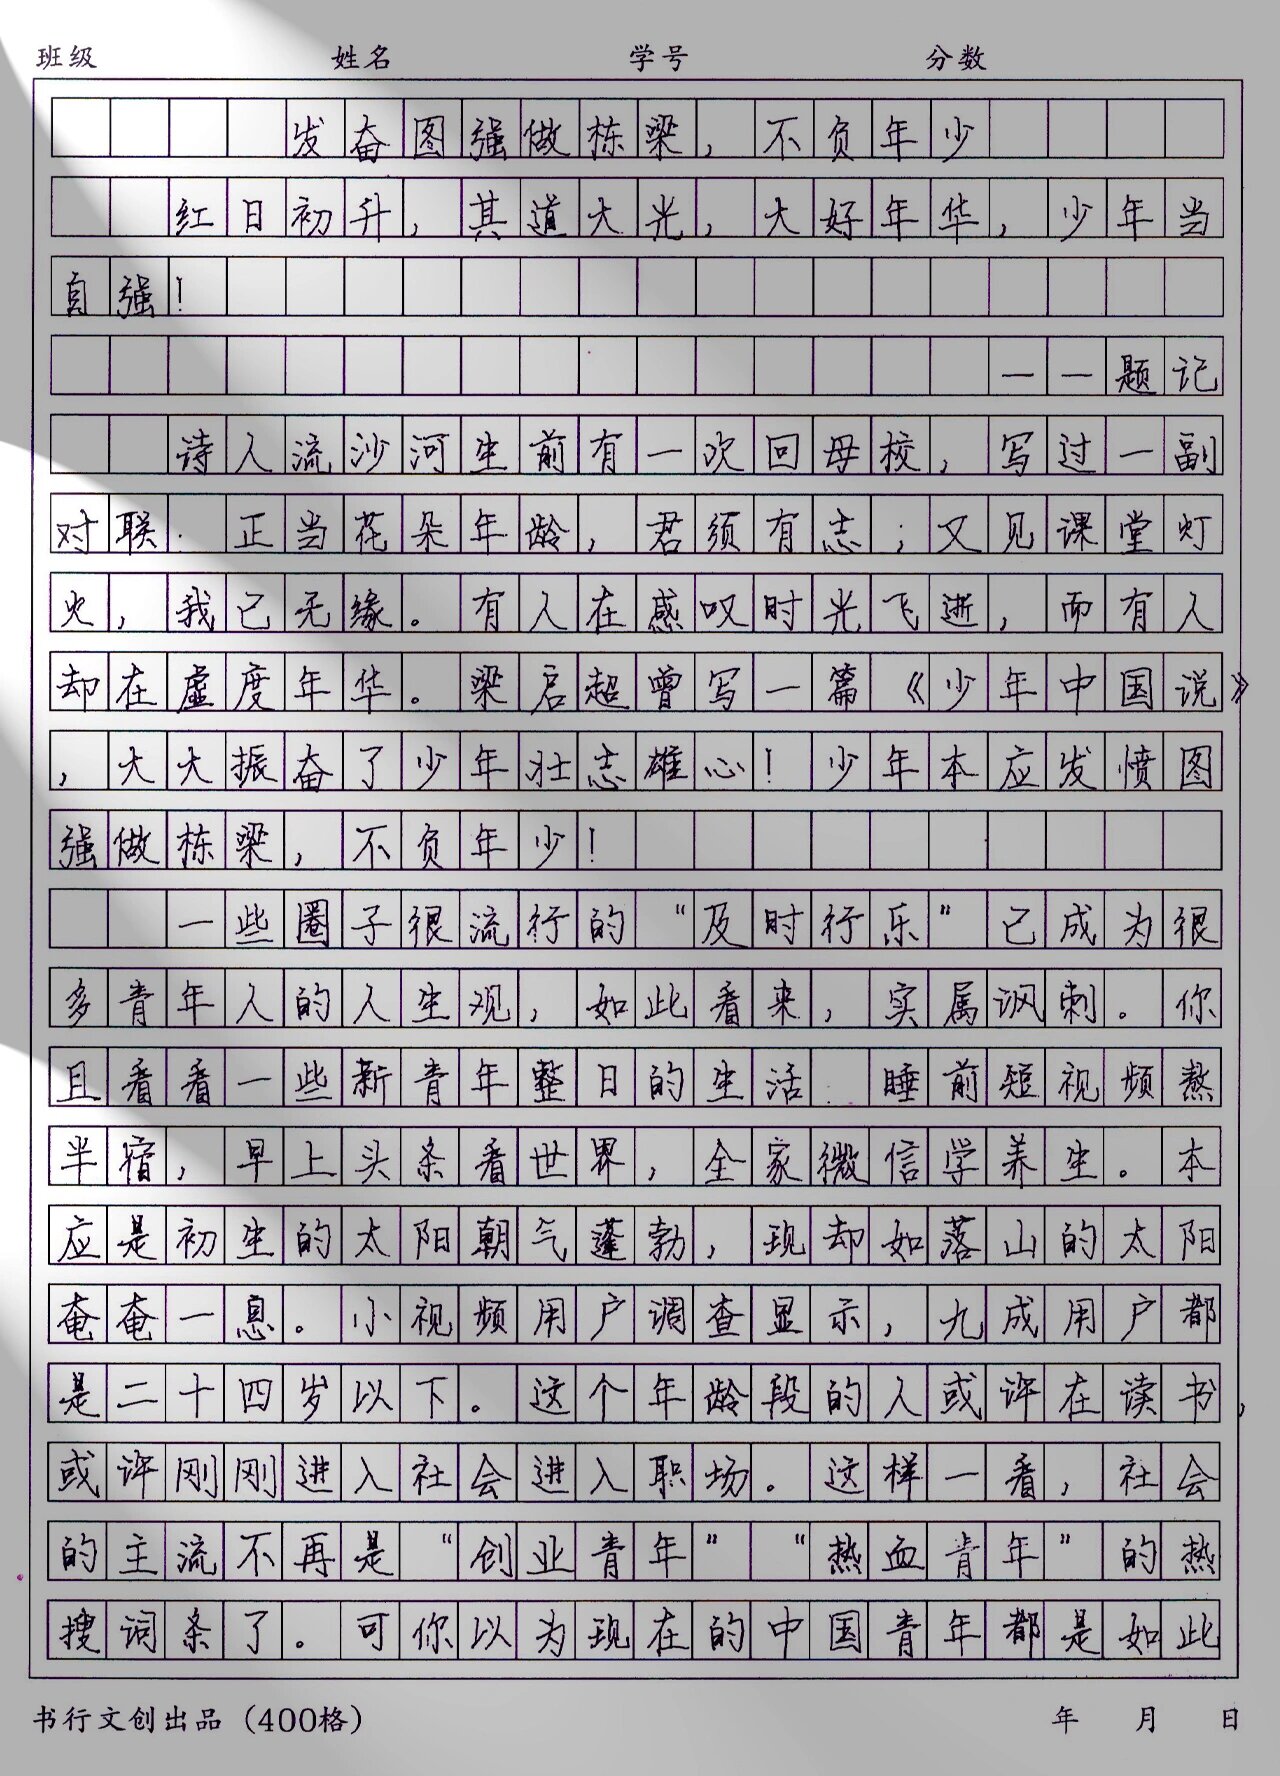 班级 姓名 学号 分数
发奋图强做栋梁，不负年少
红日初升，其道大光，大好年华，少年当
自强！
——题记
诗人流沙河生前有一次回母校，写过一副
对联：正当花朵年龄，君须有志；又见课堂灯
火，我已无缘。有人在感叹时光飞逝，而有人
却在虚度年华。梁启超曾写一篇《少年中国说》
，大大振奋了少年壮志雄心！少年本应发愤图
强做栋梁，不负年少！
一些圈子很流行的“及时行乐”已成为很
多青年人的人生观，如此看来，实属讽刺。你
且看看一些新青年整日的生活：睡前短视频熬
半宿，早上头条看世界，全家微信学养生。本
应是初生的太阳朝气蓬勃，现却如落山的太阳
奄奄一息。小视频用户调查显示，九成用户都
是二十四岁以下。这个年龄段的人或许在读书，
或许刚刚进入社会进入职场。这样一看，社会
的主流不再是“创业青年”“热血青年”的热
搜词条了。可你以为现在的中国青年都是如此
书行文创出品（400格） 年 月 日